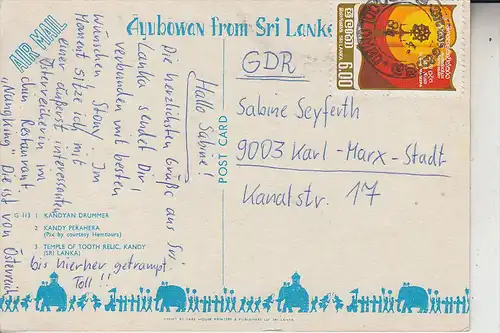 AIR MAIL
Ayubowan from Sri Lanka
Hallo Sabine!
Die herzlichsten Grüße aus Sri
Lanka sendet Dir!
verbunden mit besten
Wünschen Stony. Im
Moment sitze ich mit
einer äußerst interessanten
Österreicherin im
chin. Restaurant
„Nangking" Die ist von Österreich
bis hierher getrampt.
Toll!!
G 113 1 KANDYAN DRUMMER
2 KANDY PERAHERA
(Pix by courtesy Hemtours)
3 TEMPLE OF TOOTH RELIC, KANDY
(SRI LANKA)
POST CARD
GDR
Sabine Seyferth
9003 Karl-Marx-Stadt
Kanalstr. 17
ශ්‍රී ලංකා
SRI LANKA
6.00